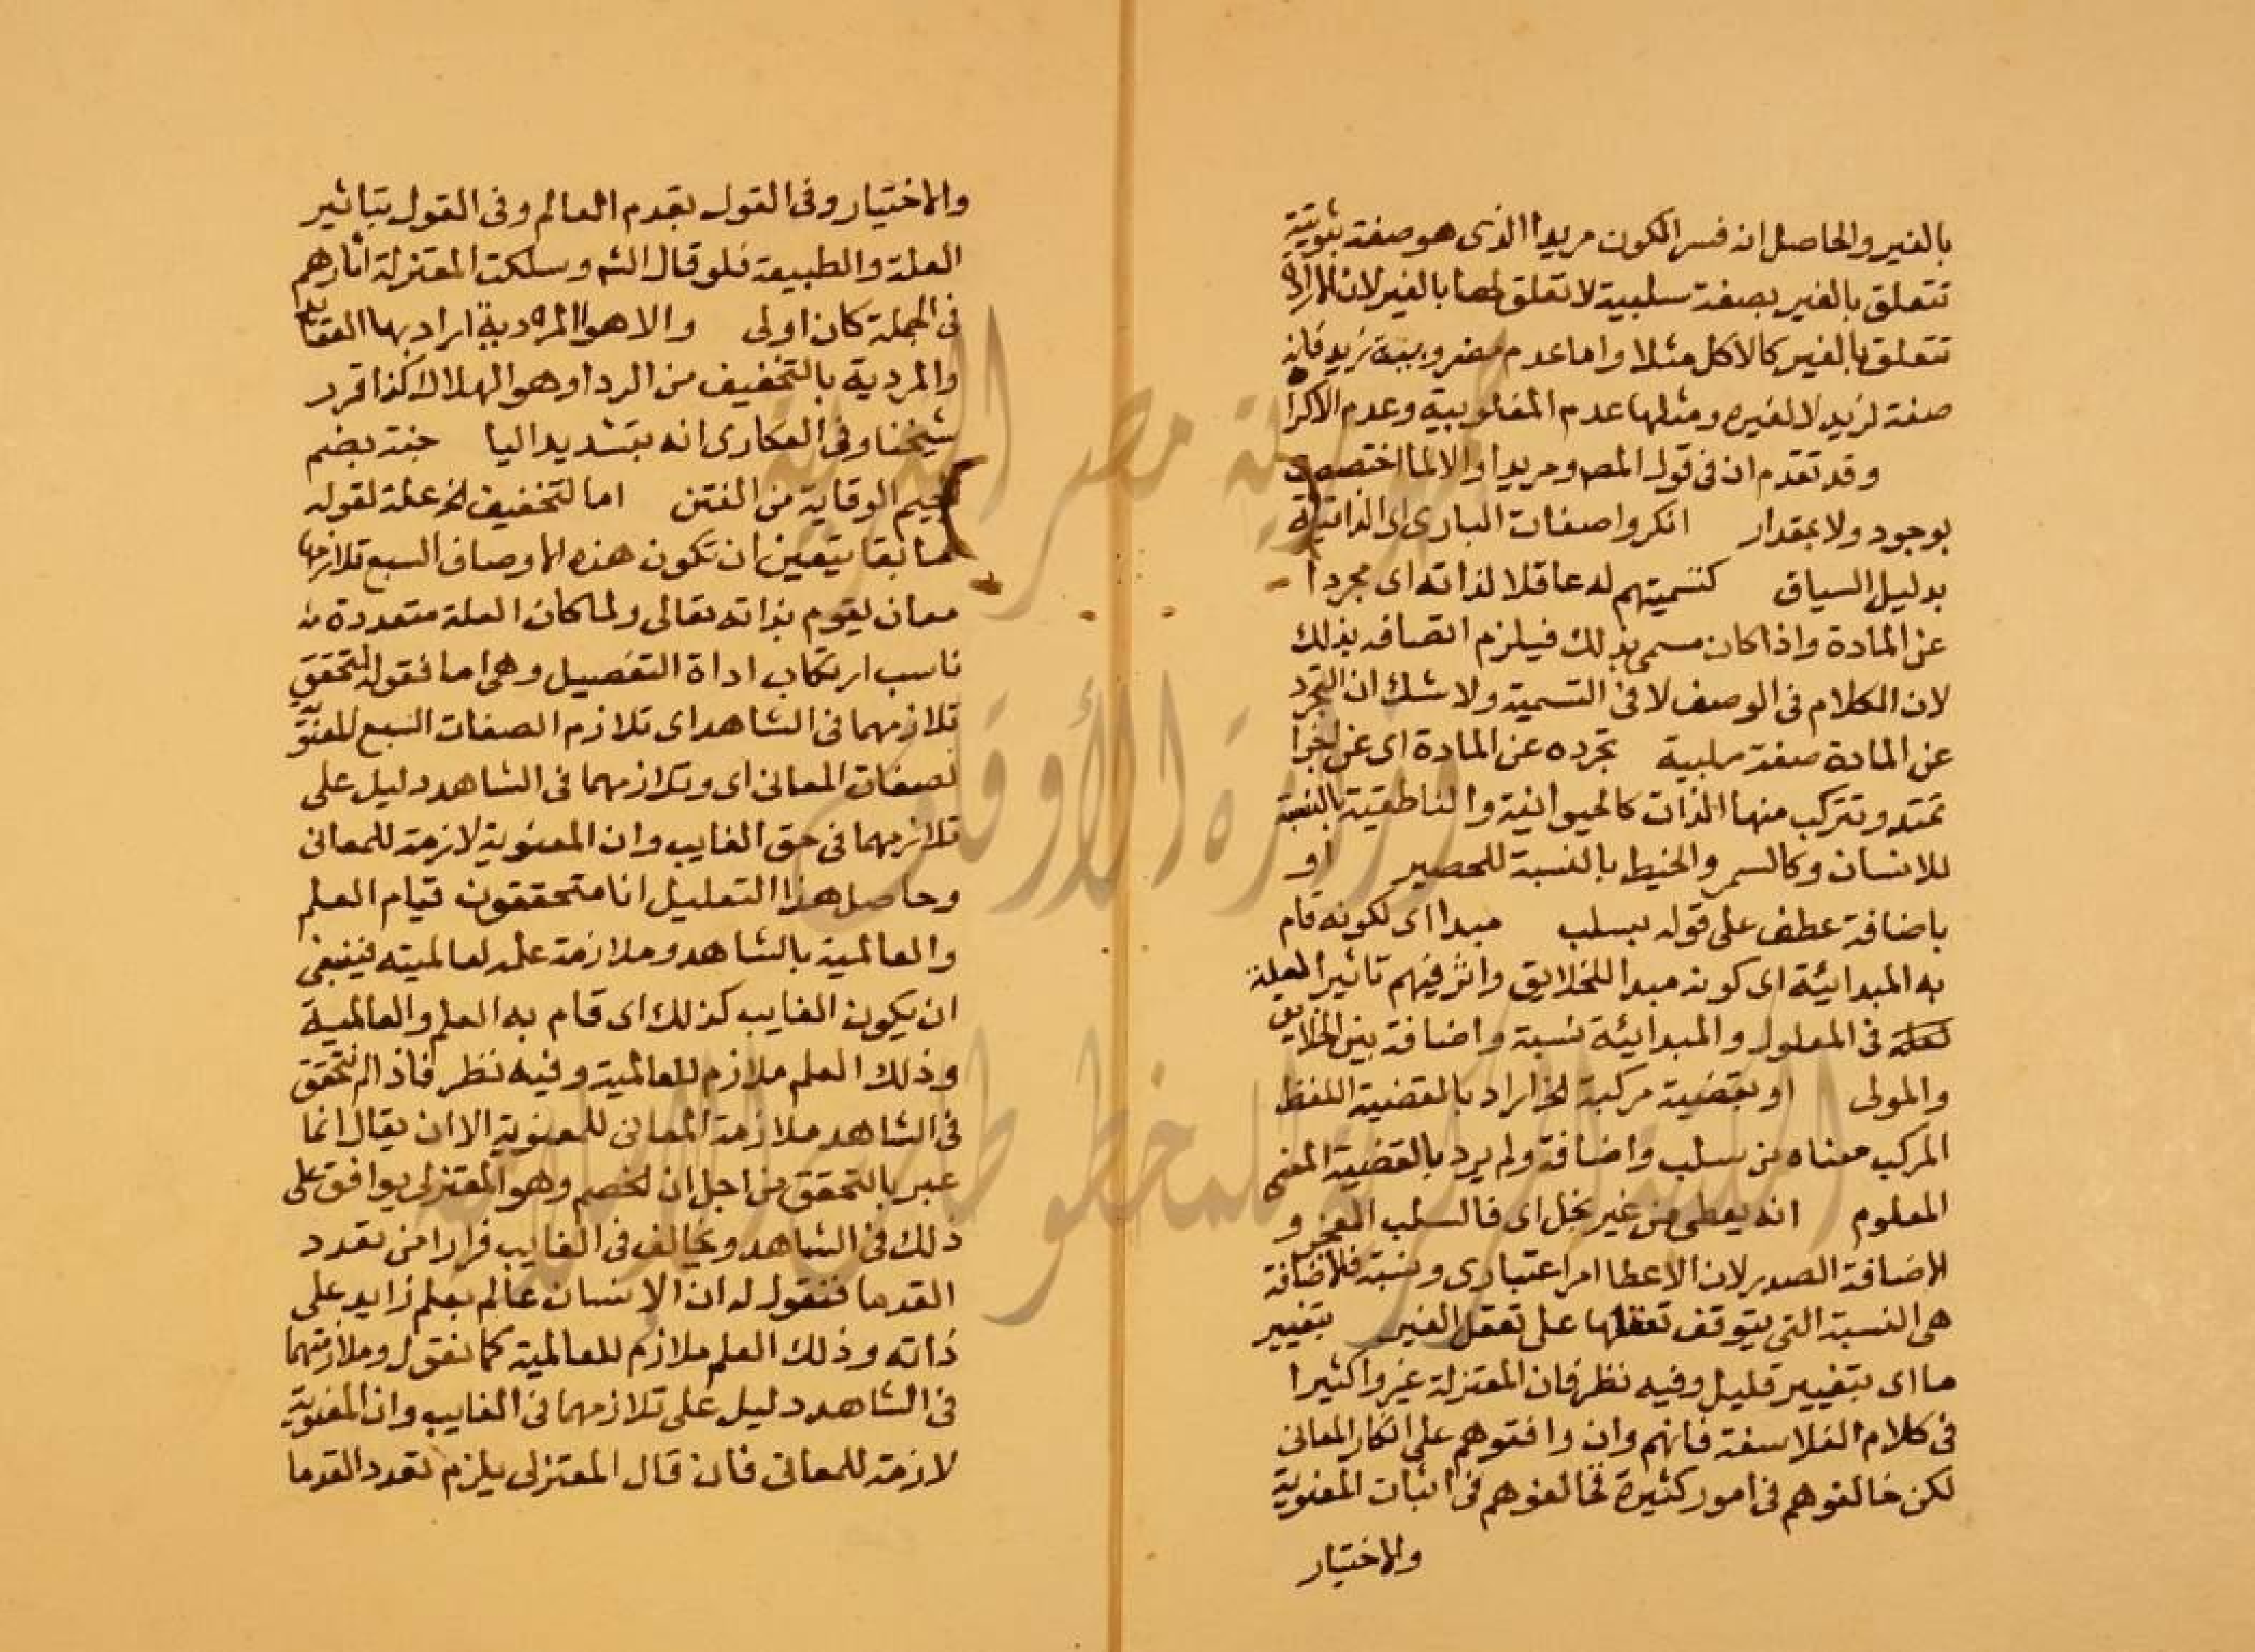 بالغير والحاصل انه فسر الكون مريدا الذى هو صفة ثبوتية
تتعلق بالغير بصفة سلبية لا تعلق لها بالغير لان الارادة
تتعلق بالغير كالاكل مثلا واما عدم مضروبية زيد فانه
صفة لزيد لا لغيره ومثلها عدم المغلوبية وعدم الاكراه
وقد تقدم ان فى قول المص ومريدا والا لما اختصت
بوجود ولا بمقدار انكروا صفات البارى اى الذاتية
بدليل السياق كتسميتهم له عاقلا لذاته اى مجردا
عن المادة واذا كان مسمى بذلك فيلزم اتصافه بذلك
لان الكلام فى الوصف لا فى التسمية ولا شك ان التجرد
عن المادة صفة سلبية تجرده عن المادة اى عن اجزا
تمتد وتتركب منها الذات كالحيوانية والناطقية بالنسبة
للانسان وكالسمر والخيط بالنسبة للحصير او
باضافة عطف على قوله بسلب مبدا اى لكونه قام
به المبدائية اى كونه مبدا للخلايق واثر فيهم تاثير العلة
فى المعلول والمبدائية نسبة واضافة بين الخلايق
والمولى او بقضية مركبة الخ اراد بالقضية اللفظ
المركب معناه من سلب واضافة ولم يرد بالقضية المعنى
المعلوم انه يعطى من غير بخل اى فالسلب العجز و
الاضافة الصدر لان الاعطا امر اعتبارى ونسبة فالاضافة
هى النسبة التى يتوقف تعقلها على تعقل الغير بتغيير
ما اى بتغيير قليل وفيه نظر فان المعتزلة غيروا كثيرا
فى كلام الفلاسفة فانهم وان وافقوهم على انكار المعانى
لكن خالفوهم فى امور كثيرة فخالفوهم فى اثبات المعنوية
والاختيار
والاختيار وفى القول بقدم العالم وفى القول بتاثير
العلة والطبيعة فلو قال الش وسلكت المعتزلة اثارهم
فى الجملة كان اولى والاهوا المردية اراد بها العقايد
والمردية بالتخفيف من الردا وهو الهلاك كذا قرر
شيخنا وفى العكارى انه بتشديد اليا جنة بضم
الجيم الوقاية من الفتن اما لتخفيف الخ علة لقوله
سابقا يتعين ان تكون هذه الاوصاف السبع تلازمها
معان يقوم بذاته تعالى ولما كان العلة متعددة
ناسب ارتكاب اداة التفصيل وهى اما فقوله لتحقق
تلازمهما فى الشاهد اى تلازم الصفات السبع المعنوية
لصفات المعانى اى وتلازمهما فى الشاهد دليل على
تلازمهما فى حق الغايب وان المعنوية لازمة للمعانى
وحاصل هذا التعليل انا متحققون قيام العلم
والعالمية بالشاهد وملازمة علمه لعالميته فينبغى
ان يكون الغايب كذلك اى قام به العلم والعالمية
وذلك العلم ملازم للعالمية وفيه نظر فاذا لم نتحقق
فى الشاهد ملازمة المعانى للمعنوية الا ان يقال انما
عبر بالتحقق من اجل ان الخصم وهو المعتزلى يوافق على
ذلك فى الشاهد ويخالف فى الغايب فرارا من تعدد
القدما فنقول له ان الانسان عالم بعلم زايد على
ذاته وذلك العلم ملازم للعالمية كما نقول وملازمتهما
فى الشاهد دليل على تلازمهما فى الغايب وان المعنوية
لازمة للمعانى فان قال المعتزلى يلزم تعدد القدما